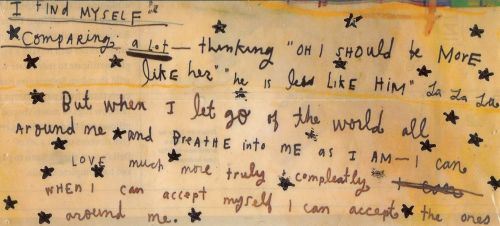 I FIND MYSELF
COMPARING a LOT — thinking "OH I SHOULD be MORE
like her" "he is less LIKE HIM" La La La
But when I let go of the world all
around me and BREATHE into me as I AM — I can
LOVE much more truly compleatly
WHEN I can accept myself I can accept the ones
around me.